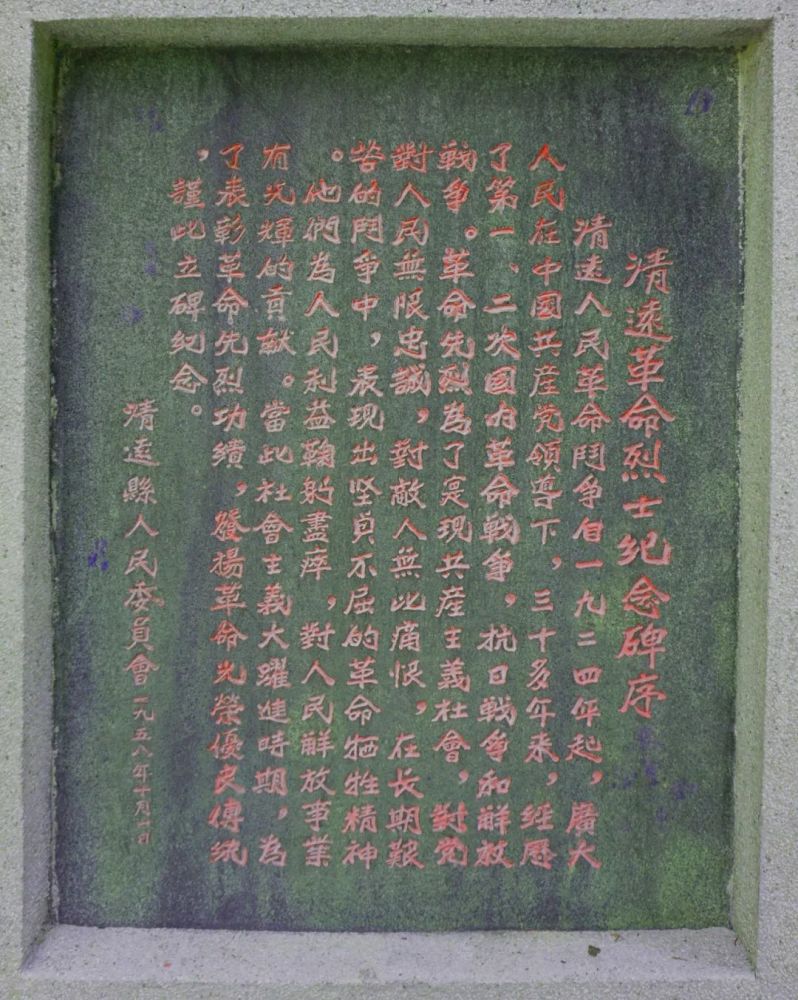 清遠革命烈士纪念碑序
清遠人民革命鬥争自一九二四年起，廣大
人民在中國共産党領導下，三十多年来，經歷
了第一、二次國内革命戰争，抗日戰争和解放
戰争。革命先烈為了实現共産主義社會，對党
對人民無限忠誠，對敵人無比痛恨，在長期艱
苦的鬥争中，表現出坚貞不屈的革命牺牲精神
。他們為人民利益鞠躬盡瘁，對人民解放事業
有光輝的貢献。當此社會主義大躍進時期，為
了表彰革命先烈功績，發揚革命光榮優良傳統
，謹此立碑纪念。
清遠縣人民委員會一九五八年十月一日